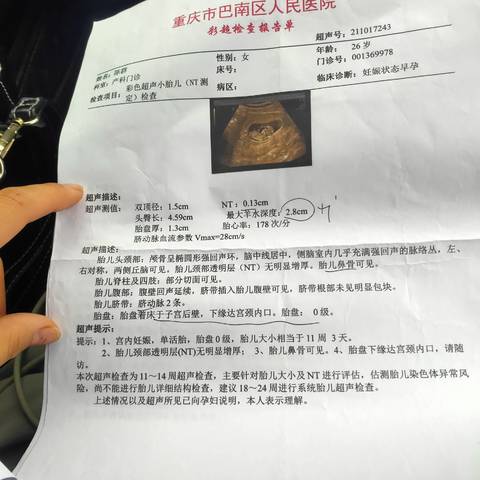 重庆市巴南区人民医院
彩超检查报告单
超声号：211017243
性别：女
年龄： 26岁
科室：产科门诊
床号：
门诊号：001369978
检查项目：彩色超声小胎儿（NT测定）检查
病区：
临床诊断：妊娠状态早孕
超声描述：
超声测值： 双顶径：1.5cm NT：0.13cm
头臀长：4.59cm 最大羊水深度：2.8cm
胎盘厚：1.3cm 胎心率：178 次/分
脐动脉血流参数 Vmax=28cm/s
超声描述：
胎儿头颈部：颅骨呈椭圆形强回声环，脑中线居中，侧脑室内几乎充满强回声的脉络丛，左、
右对称，两侧丘脑可见。胎儿颈部透明层（NT）无明显增厚。胎儿鼻骨可见。
胎儿脊柱及四肢：部分切面可见。
胎儿腹部：腹壁回声延续，脐带插入胎儿腹壁可见，脐带根部未见明显包块。
胎儿脐带：脐动脉 2 条。
胎盘：胎盘着床于子宫后壁，下缘达宫颈内口，胎盘： 0 级。
超声提示：
提示：1、宫内妊娠，单活胎，胎盘 0 级，胎儿大小相当于 11 周 3 天。
2、胎儿颈部透明层(NT)无明显增厚； 3、胎儿鼻骨可见。4、胎盘下缘达宫颈内口，请随
访。
本次超声检查为 11～14 周超声检查，主要针对胎儿大小及 NT 进行评估，估测胎儿染色体异常风
险，尚不能进行胎儿详细结构检查，建议 18～24 周进行系统胎儿超声检查。
上述情况以及超声所见已向孕妇说明，本人表示理解。